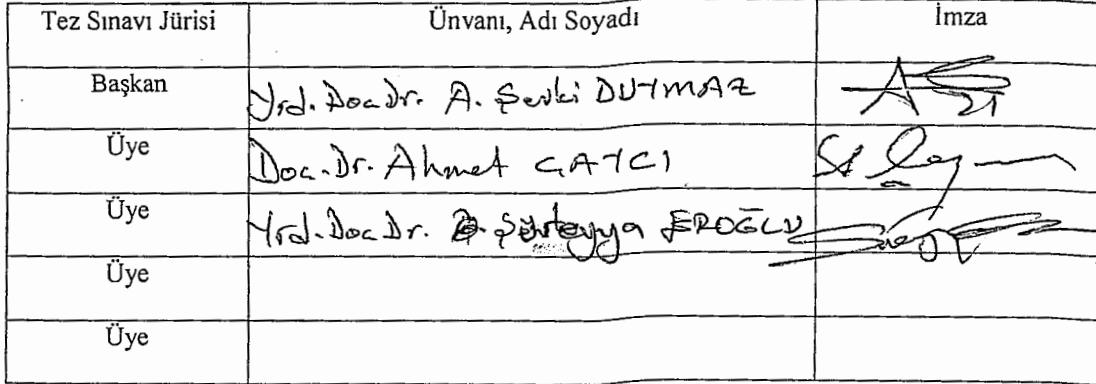 Tez Sınavı Jürisi Ünvanı, Adı Soyadı İmza
Başkan Yrd. Doc. Dr. A. Şevki DUYMAZ
Üye Doc. Dr. Ahmet ÇAYCI
Üye Yrd. Doc. Dr. Süreyya EROĞLU
Üye
Üye